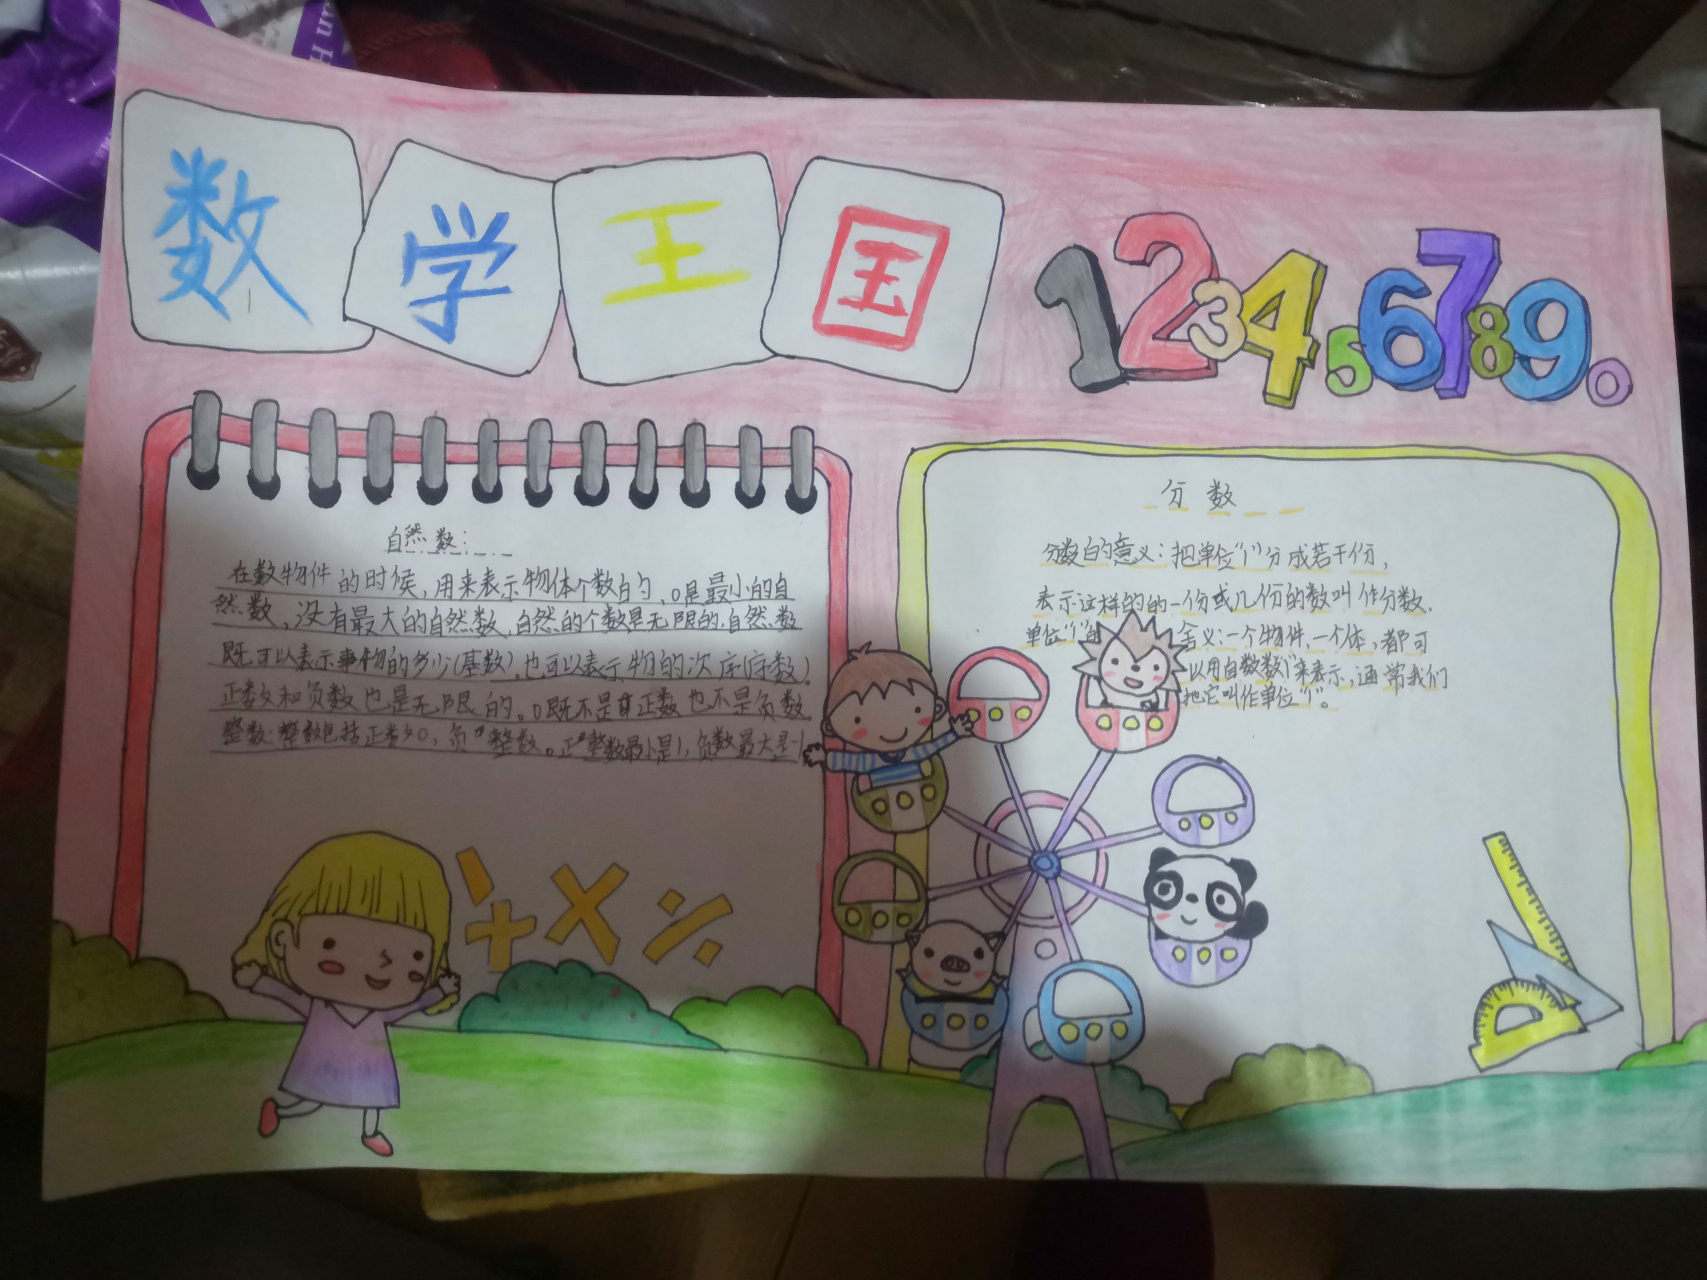 数学王国
1234567890
自然数:
在数物件的时候,用来表示物体个数的、0是最小的自
然数,没有最大的自然数,自然的个数是无限的,自然数
既可以表示事物的多少(基数),也可以表示物的次序(序数)。
正数和负数也是无限的。0既不是正数也不是负数。
整数:整数包括正数,0,负整数。正整数最小是1,负数最大是-1
+×÷
分数
分数的意义:把单位"1"分成若干份,
表示这样的的一份或几份的数叫作分数.
单位"1"的含义:一个物件,一个体,都可
以用自数数1来表示,通常我们
把它叫作单位"1"。